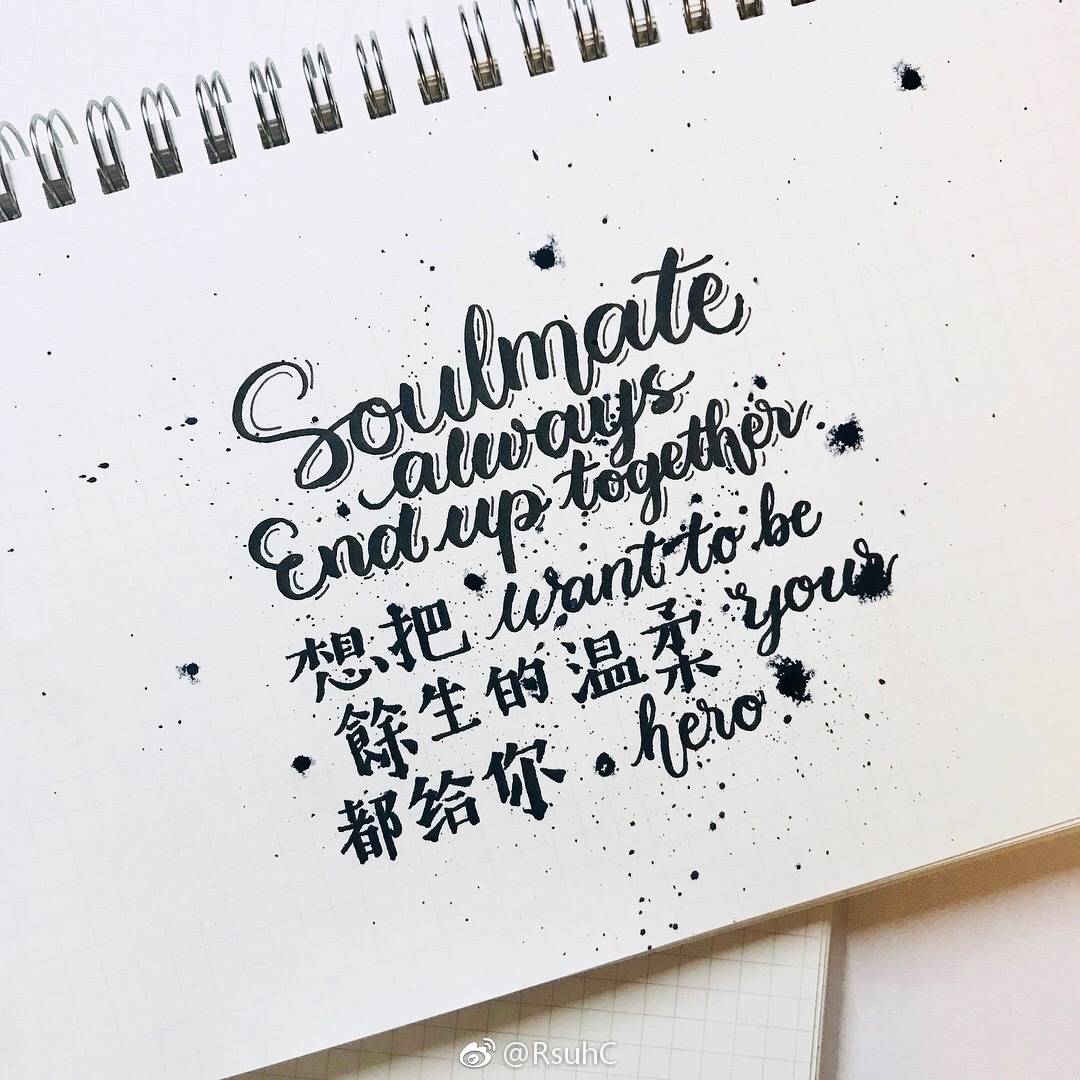 Soulmate
always
End up together
想把 want to be
餘生的温柔 your
都给你 . hero
@RsuhC